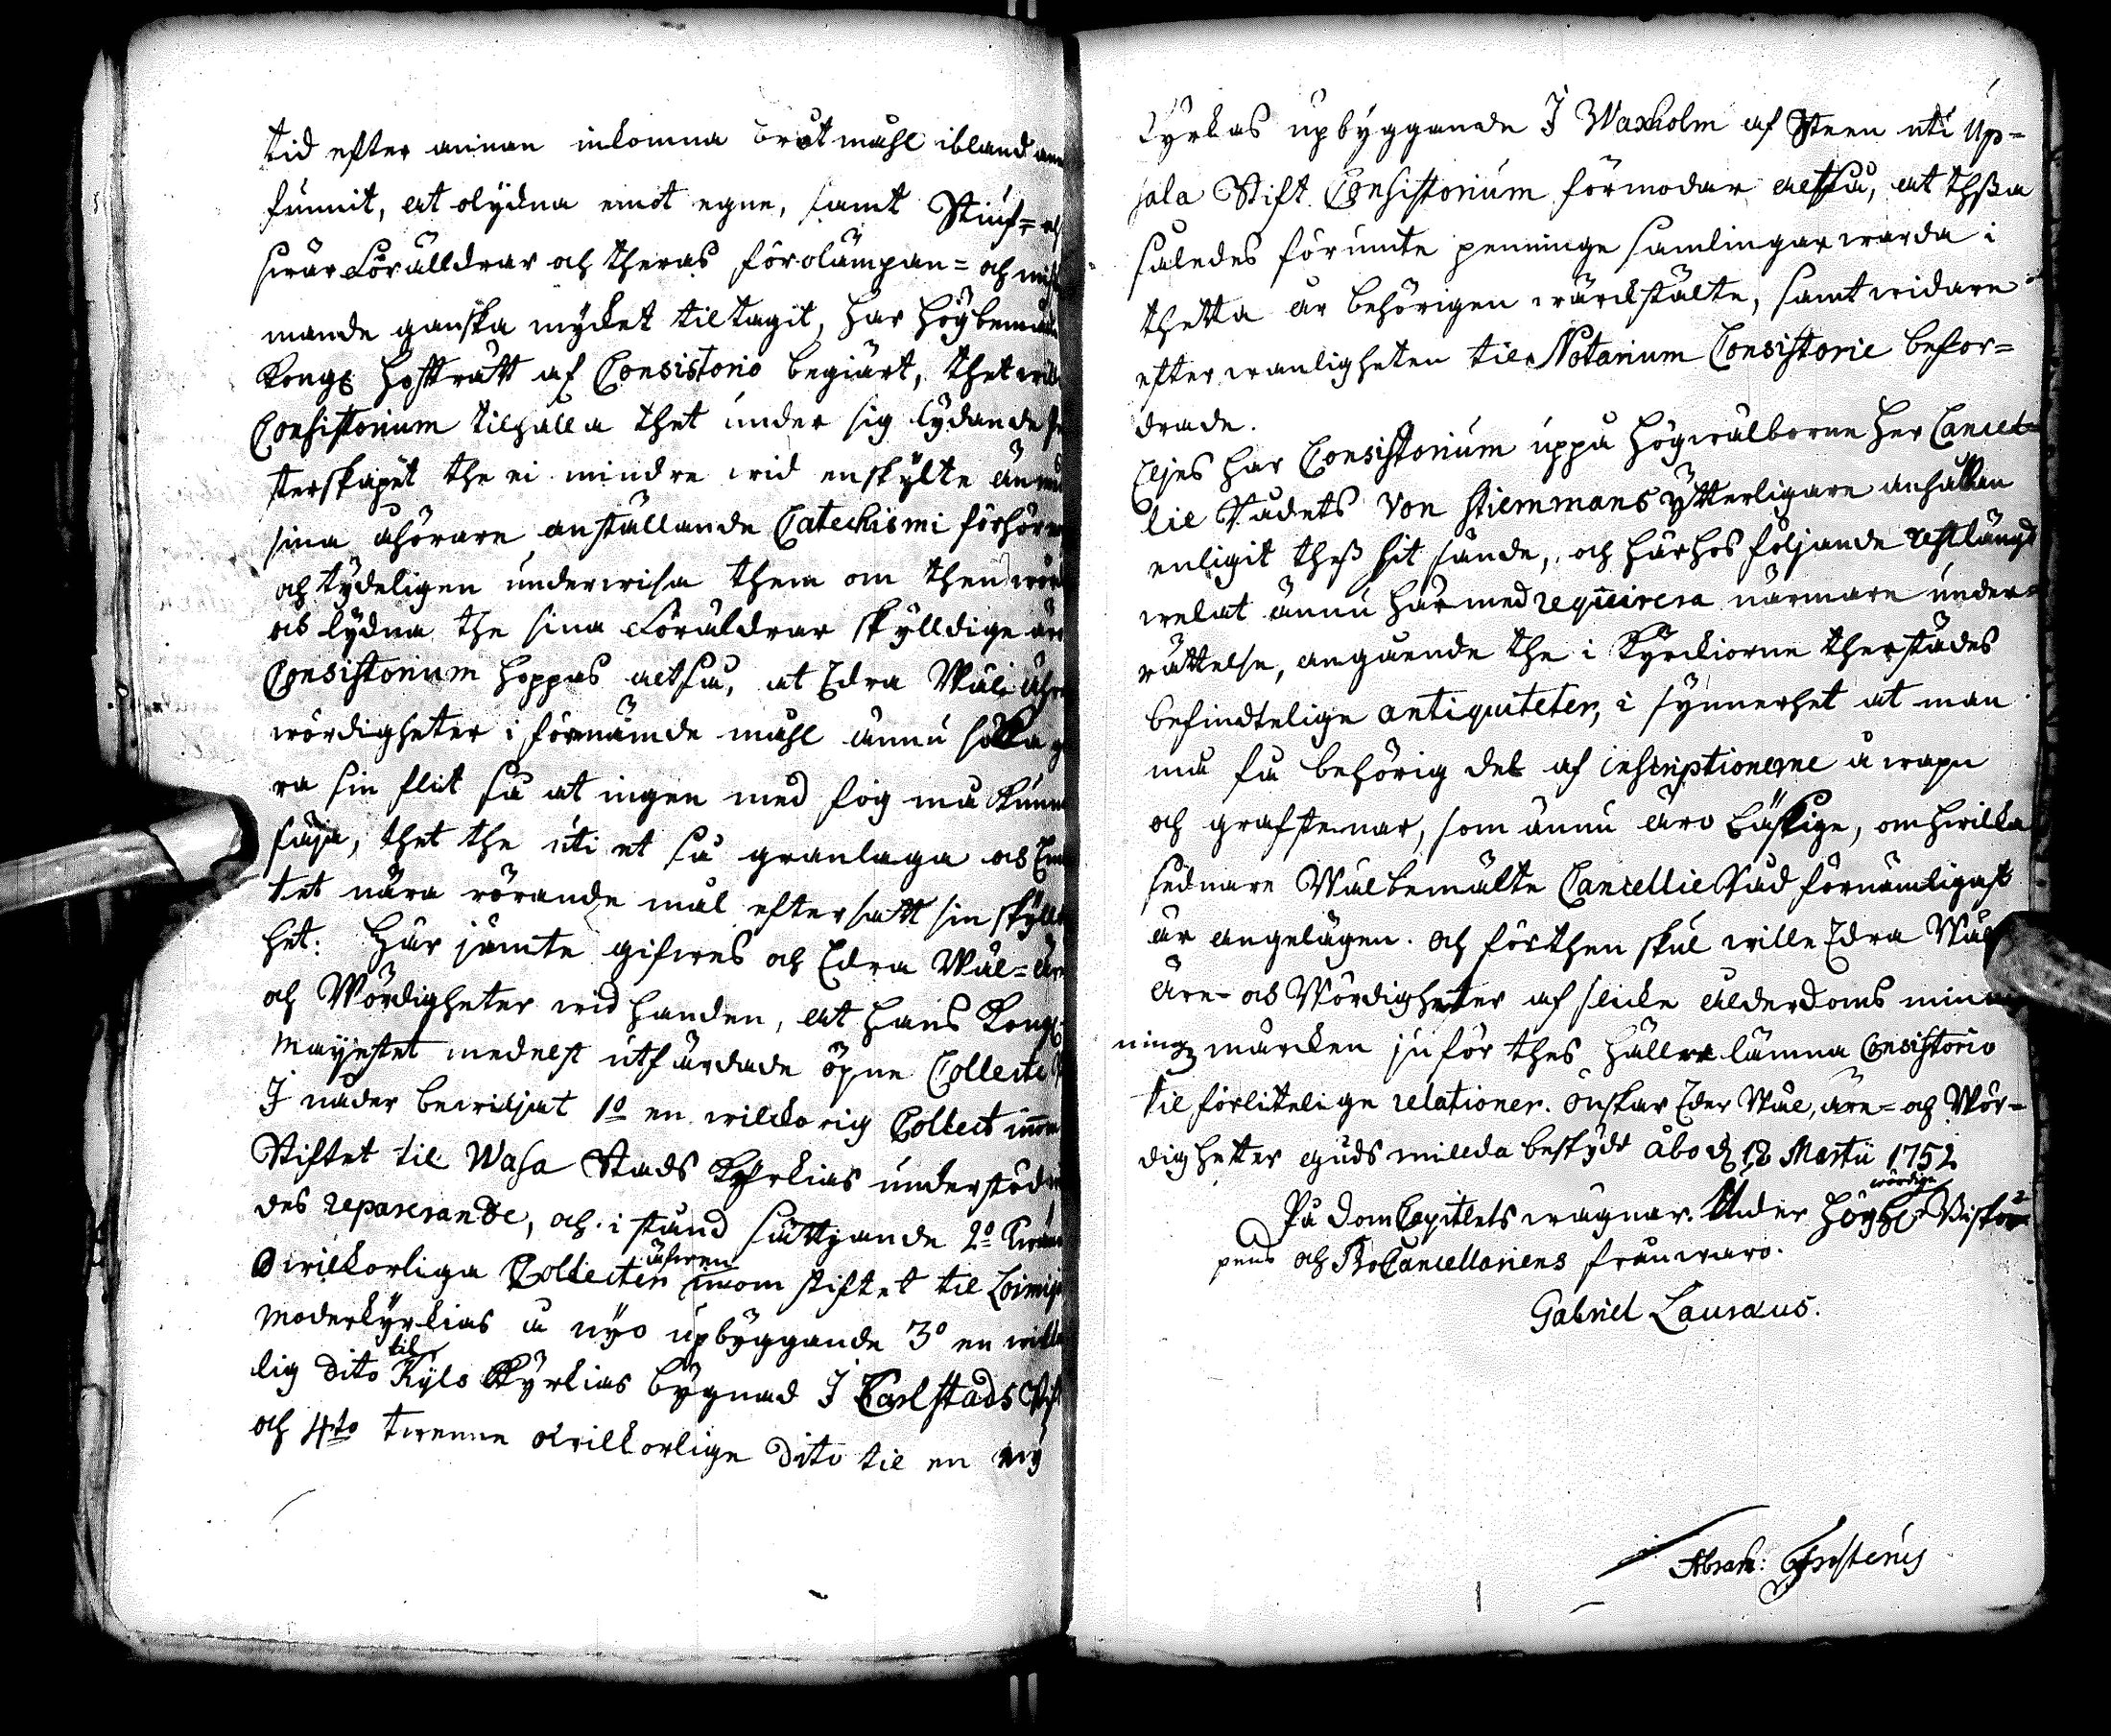 tid efter annan inkomna brotmåhl ibland ann
funnit, at olydna emot egne, samt Stiuf= och
swär Föräldrar och theras förolämpan= och miss
mande ganska mycket tiltagit, har högbemälte
Kongl Hofrätt af Consistorio begiärt, thet wille
Consistorium tilhålla thet under sig lydande Pre
sterskapet the ei mindre wid enskylte än
sina åhörare anställande Catechismi förhör
och tydeligen underwisa them om then
och lydna the sina Föräldrar skylldige äro
Consistorium hoppas altså, at Edra Wäl ähre
wördigheter i förnämde måhl ännu
ra sin flit så at ingen med fog må kunna
säija, thet the uti et så granlaga och
tet nära rörande mål eftersatt sin skylldig
het. Här jämte gifwes och Edra Wäl= äre
och Wördigheter wid handen, at Hans Kongl
Mayestet medelst utfärdade öpne
I nåder bewiljat 1o en wilkorig Collect inom
Stiftet til Wasa Stads Kyrkias understöd
des reparerande, och i stånd sättjande 2o
Owilkorliga Collecter äfwen inom stiftet til
Moderkyrkias å nyo upbyggande 3o en wilkor
lig Dito til Kyls Kyrkias bygnad I Carlstads Stift
och 4to twenne owilkorlige Dito til en ny
Kyrkas upbyggande I Waxholm af Steen uti Up=
sala Stift. Consistorium förmodar altså, at thessa
således förunte penninge samlingar warda i
thetta år behörigen wärckstälte, samt widare
efter wanligheten til Notarium Consistorii befor=
drade.
Eljes har Consistorium uppå Högwälborne Her Cancel=
lie Rådets Von Stiernmans ytterligare anhållan
enligit thess hit sände, och härhos följande restlängd
welat ännu härmed requirera närmare under=
rättelse, angående the i Kyrckiorne therstädes
befindtelige antiquiteter, i synnerhet at man
må få behörig del af inscriptionerne å wapn
och grafstenar, som ännu äro läslige, om hwilka
sednare Wälbemälte Cancellie Råd förnämligast
är angelägen. och för then skul wille Edra Wäl
Äre- och Wördigheter af slicke ålderdoms min
nings märcken ju för thes häller lämna Consistorio
til förlitelige relationer. Önskar Eder Wäl, äre= och Wör=
digheter Guds millda beskydd Åbo d 18 Martii 1752
På DomCapitlets wägnar. Under Högl: wördige Biskop=
pens och ProCancellariens frånwaro.
Gabriel Lauræus.
Abrah: